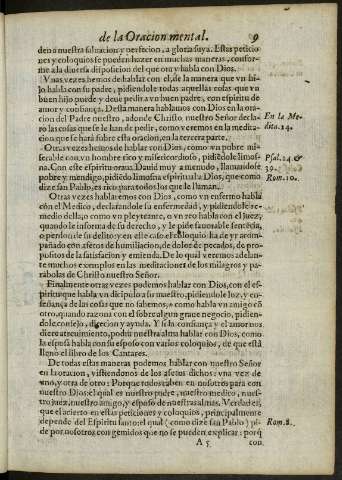 de la Oracion mental. 9
den à nuestra saluacion y perfecion, a gloria suya. Estas peticio
nes y coloquios se pueden hazer en muchas maneras, confor-
me a la diuersa disposicion del que ora y habla con Dios.
Vnas vezes hemos de hablar con el, de la manera que vn hi-
jo habla con su padre, pidiendole todas aquellas cosas que vn
buen hijo puede y deue pedir a vn buen padre, con espiritu de
amor y confiança. Desta manera hablamos con Dios en la ora-
cion del Padre nuestro, adonde Christo nuestro Señor decla-
ro las cosas que se le han de pedir, como veremos en la medita-
cion que se hara sobre esta oracion, en la tercera parte.
En la Me-
dita. 14.
Otras vezes hemos de hablar con Dios, como vn pobre mi-
serable con vn hombre rico y misericordioso, pidiendole limos-
na. Con este espiritu oraua Dauid muy a menudo, llamandose
pobre y mendigo, pidiendo limosna espiritual a Dios, que como
dize san Pablo, es rico para todos los que le llaman.
Psal. 24. &
39.
Rom. 10.
Otras vezes hablaremos con Dios, como vn enfermo habla
con el Medico, declarandole su enfermedad, y pidiendole re-
medio della, o como vn pleyteante, o vn reo habla con el juez,
quando le informa de su derecho, y le pide fauorable sentēcia,
o perdon de su delito y en este caso el Coloquio ha de yr acom-
pañado con afetos de humiliacion, de dolor de pecados, de pro-
positos de la satisfacion y emienda. De lo qual veremos adelan-
te muchos exemplos en las meditaciones de los milagros y pa-
rabolas de Christo nuestro Señor.
Finalmente otras vezes podemos hablar con Dios, con el es-
piritu que habla vn dicipulo a su maestro, pidiendole luz, y en-
señança de las cosas que no sabemos, o como habla vn amigo cō
otro, quando razona con el sobre algun graue negocio, pidien-
dole consejo, direcion y ayuda. Y si la confiança y el amor nos
diere atreuimiento, podrà nuestra alma hablar con Dios, como
la esposa habla con su esposo con varios coloquios, de que está
lleno el libro de los Cantares.
De todas estas maneras podemos hablar con nuestro Señor
en la oracion, vistiendonos de los afetos dichos: vna vez de
vno, y otra de otro: Porque todos caben en nosotros para con
nuestro Dios: el qual es nuestro padre, nuestro medico, nues-
tro juez, nuestro amigo, y esposo de nuestras almas. Verdad es,
que el acierto en estas peticiones y coloquios, principalmente
depende del Espiritu santo: el qual (como dize san Pablo) pi-
de por nosotros con gemidos que no se pueden explicar: porq̄
Rom. 8.
A 5 con